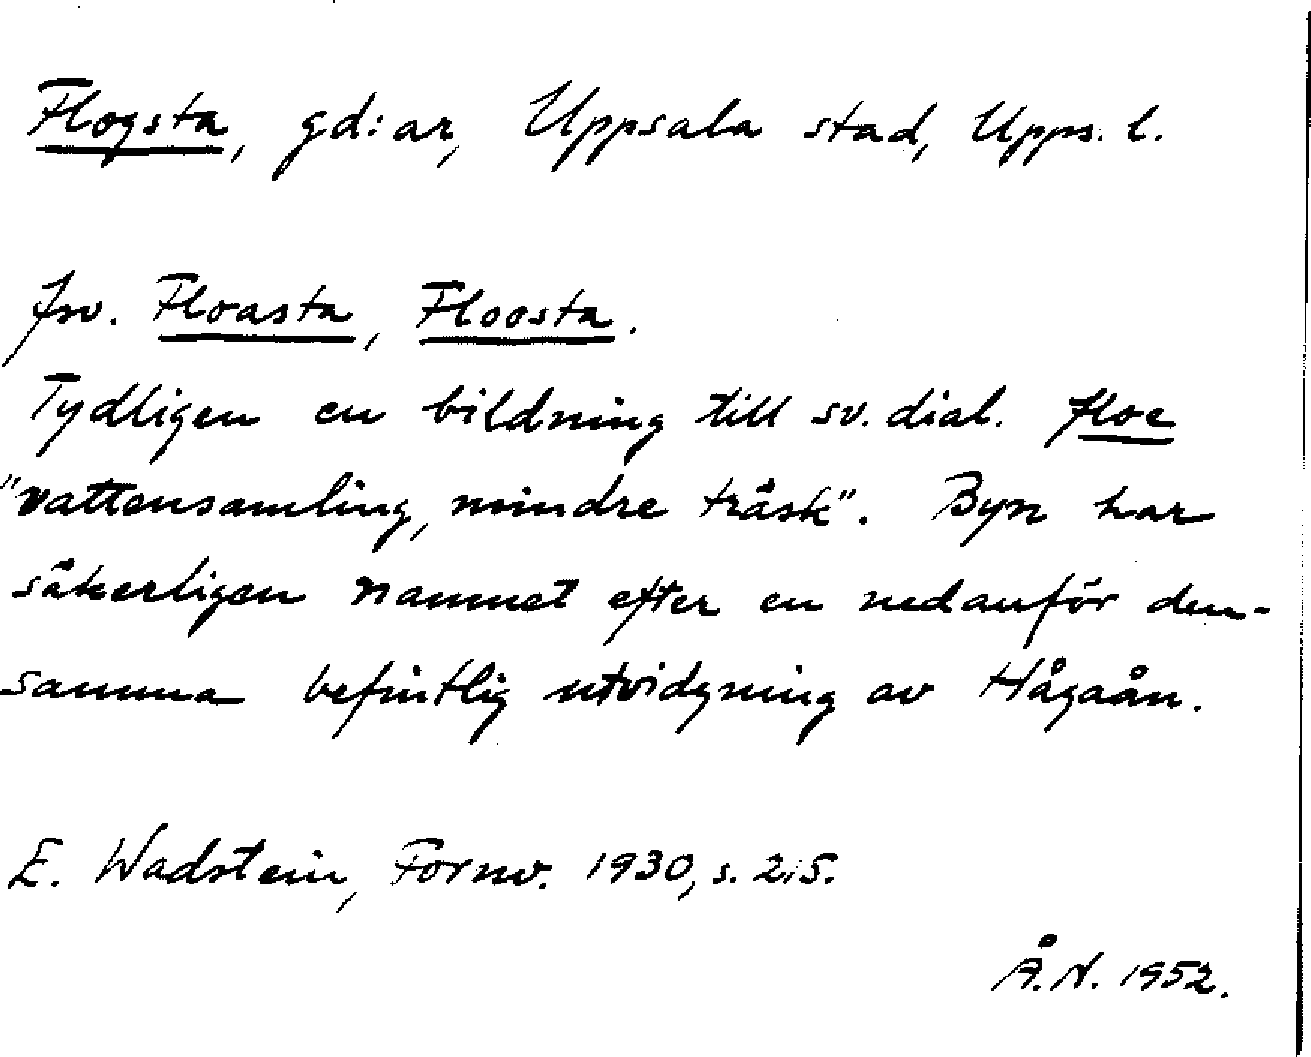 Flogsta, gd:ar, Uppsala stad, Upps. l.
fsv. Floasta, Floosta.
Tydligen en bildning till sv. dial. floe
"vattensamling, mindre träsk". Byn har
säkerligen namnet efter en nedanför den-
samma befintlig utvidgning av Hågaån.
E. Wadstein, Fornv. 1930, s. 215.
Å.N. 1952.